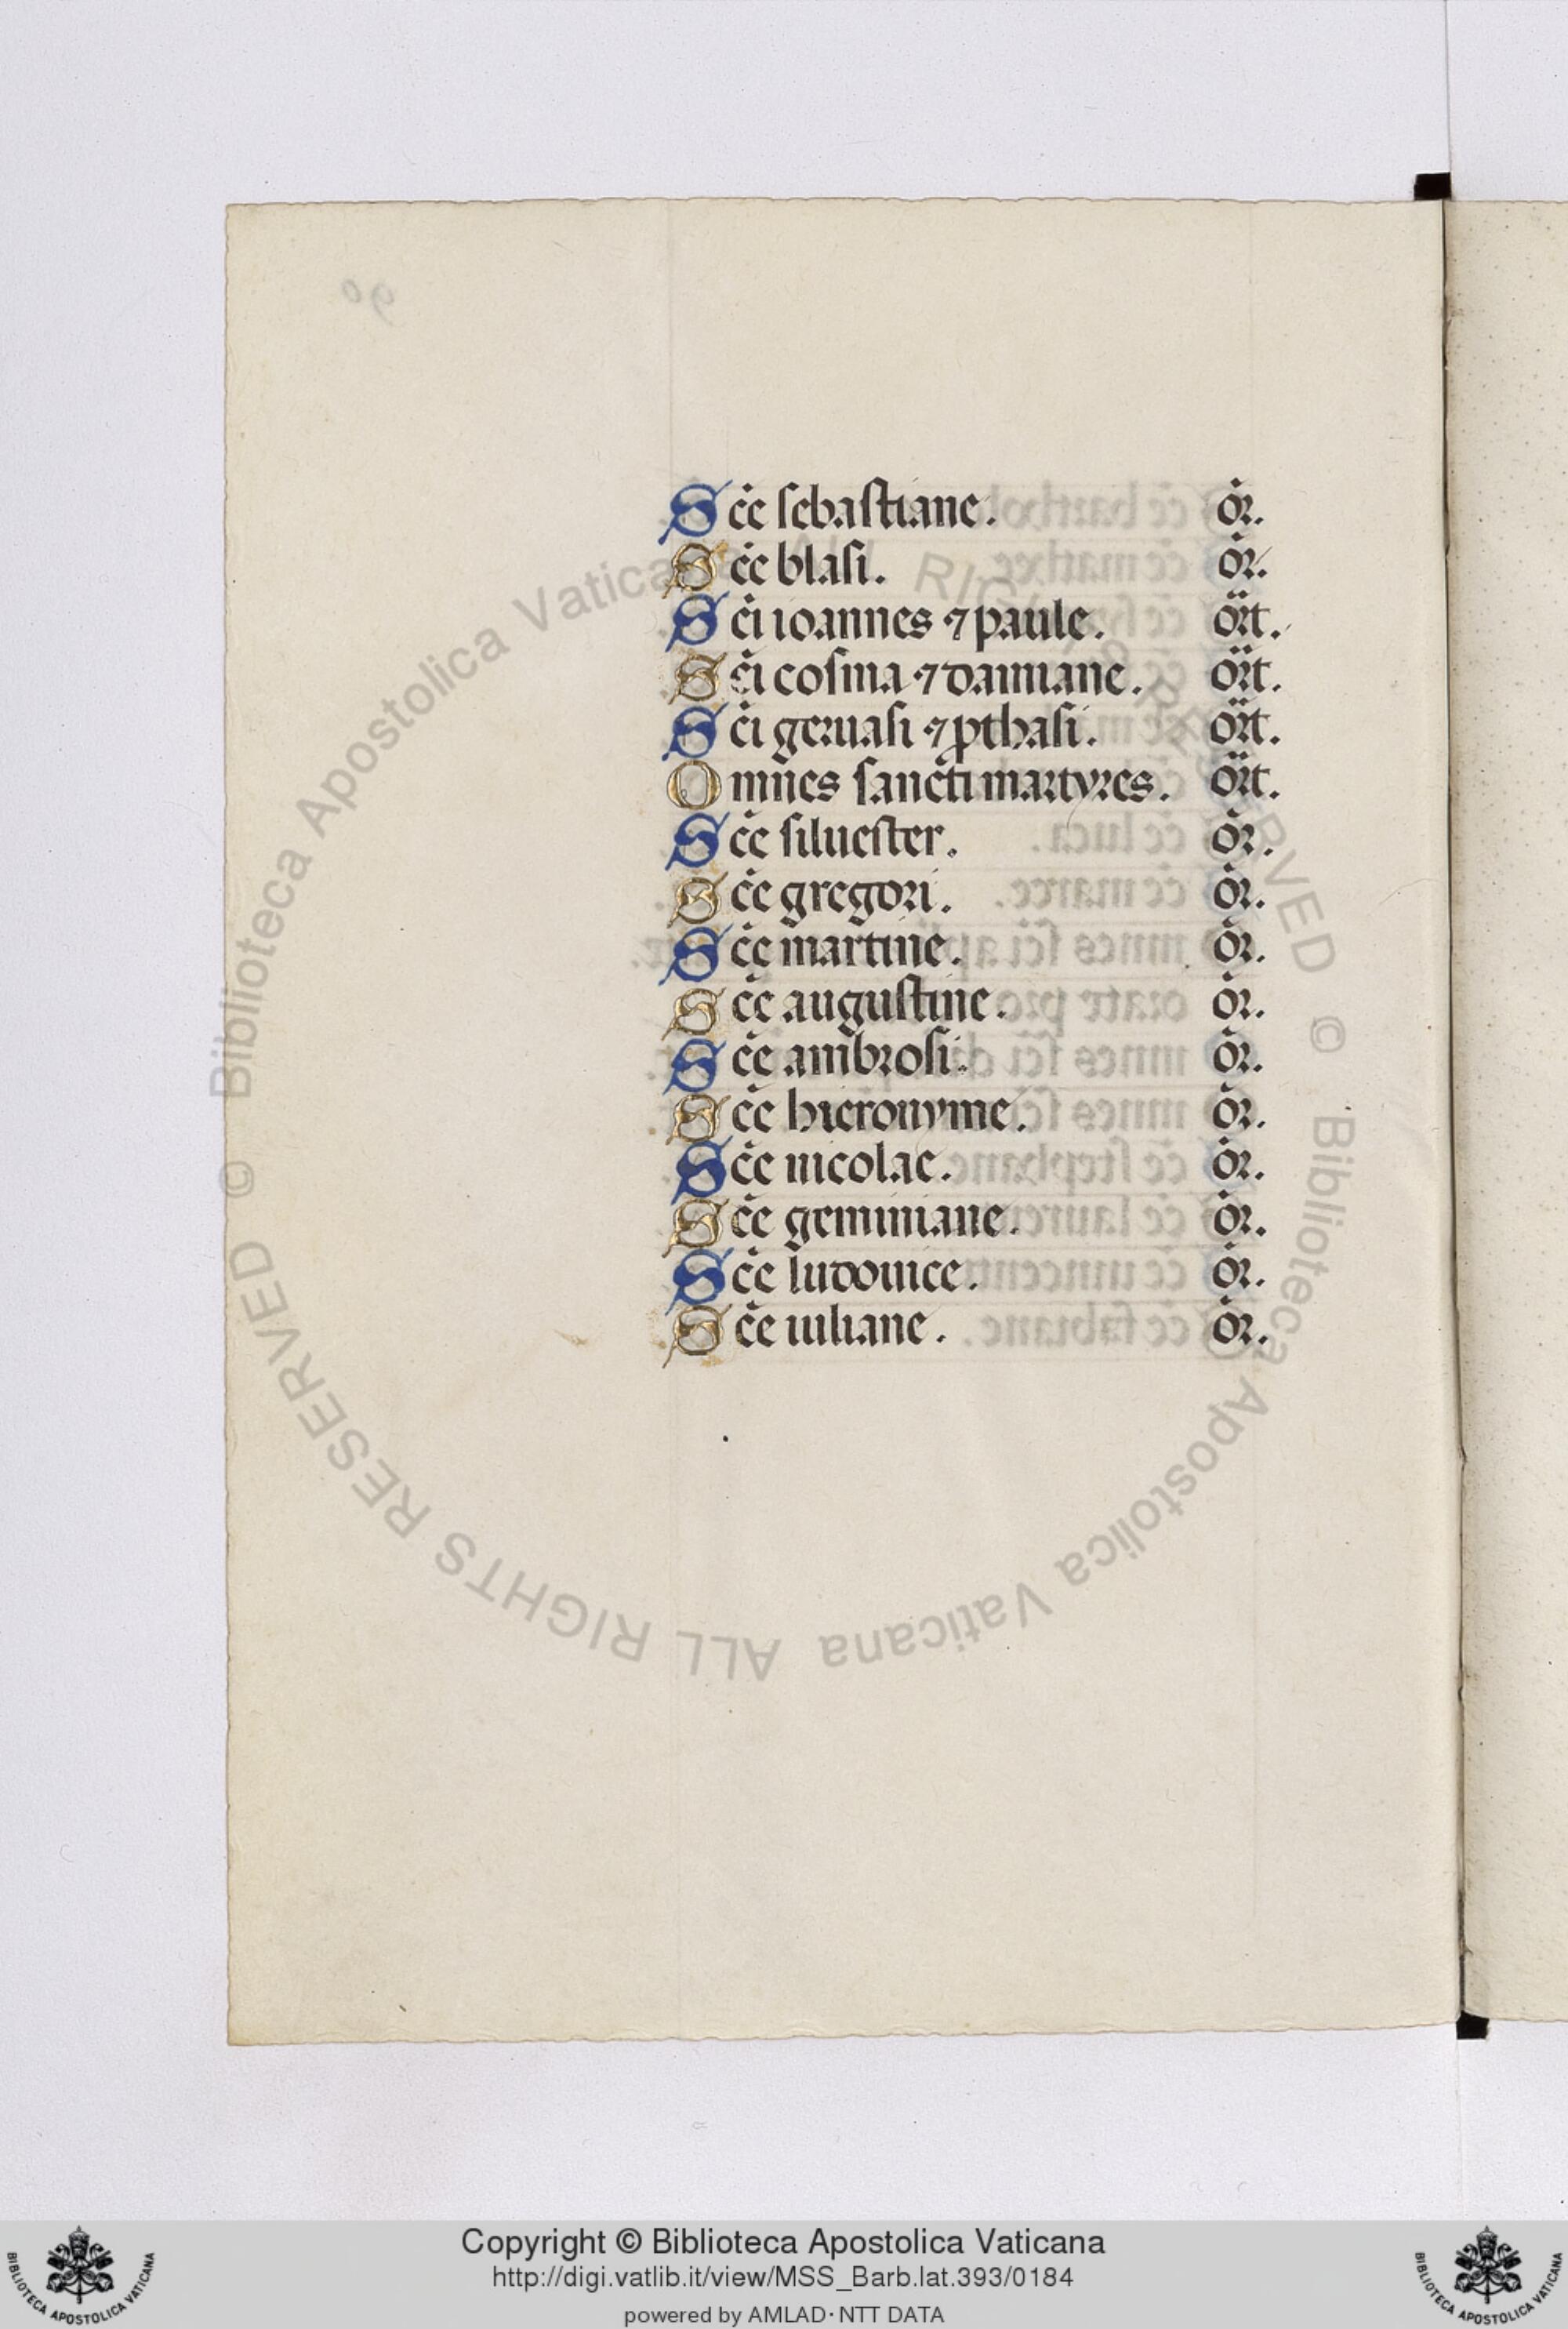 Sc̄e sebastiane. or̄.
Sc̄e blasi. or̄.
Sc̄i ioannes ⁊ paule. or̄t.
Sc̄i cosma ⁊ damiane. or̄t.
Sc̄i geruasi ⁊ ꝓthasi. or̄t.
Omnes sancti martyres. or̄t.
Sc̄e siluester. or̄.
Sc̄e gregori. or̄.
Sc̄e martine. or̄.
Sc̄e augustine. or̄.
Sc̄e ambrosi. or̄.
Sc̄e hieronyme. or̄.
Sc̄e nicolae. or̄.
Sc̄e geminiane. or̄.
Sc̄e ludouice. or̄.
Sc̄e iuliane. or̄.
© Biblioteca Apostolica Vaticana ALL RIGHTS RESERVED © Biblioteca Apostolica Vaticana ALL RIGHTS RESERVED
Copyright © Biblioteca Apostolica Vaticana
http://digi.vatlib.it/view/MSS_Barb.lat.393/0184
powered by AMLAD·NTT DATA
BIBLIOTECA APOSTOLICA VATICANA
BIBLIOTECA APOSTOLICA VATICANA